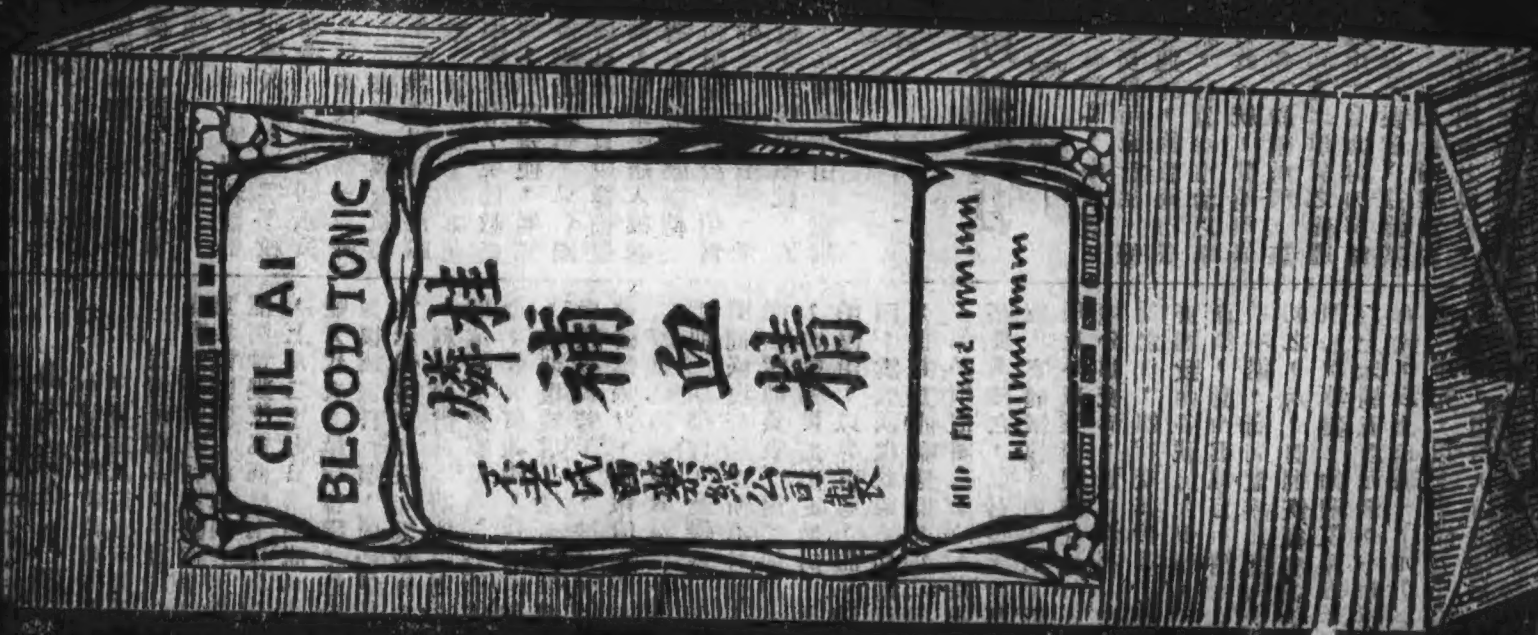 CHIL AI
BLOOD TONIC
桂燐
補血精
氏西藥總公司製